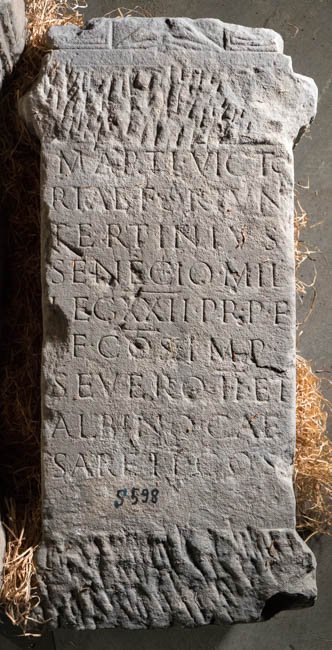 MARTI VICTO
RIAE FORTVN
TERTINIVS
SENECIO MIL
LEG XXII PR P F
F COS IMP
SEVERO II ET
ALBINO CAE
SARE II COS
S 598